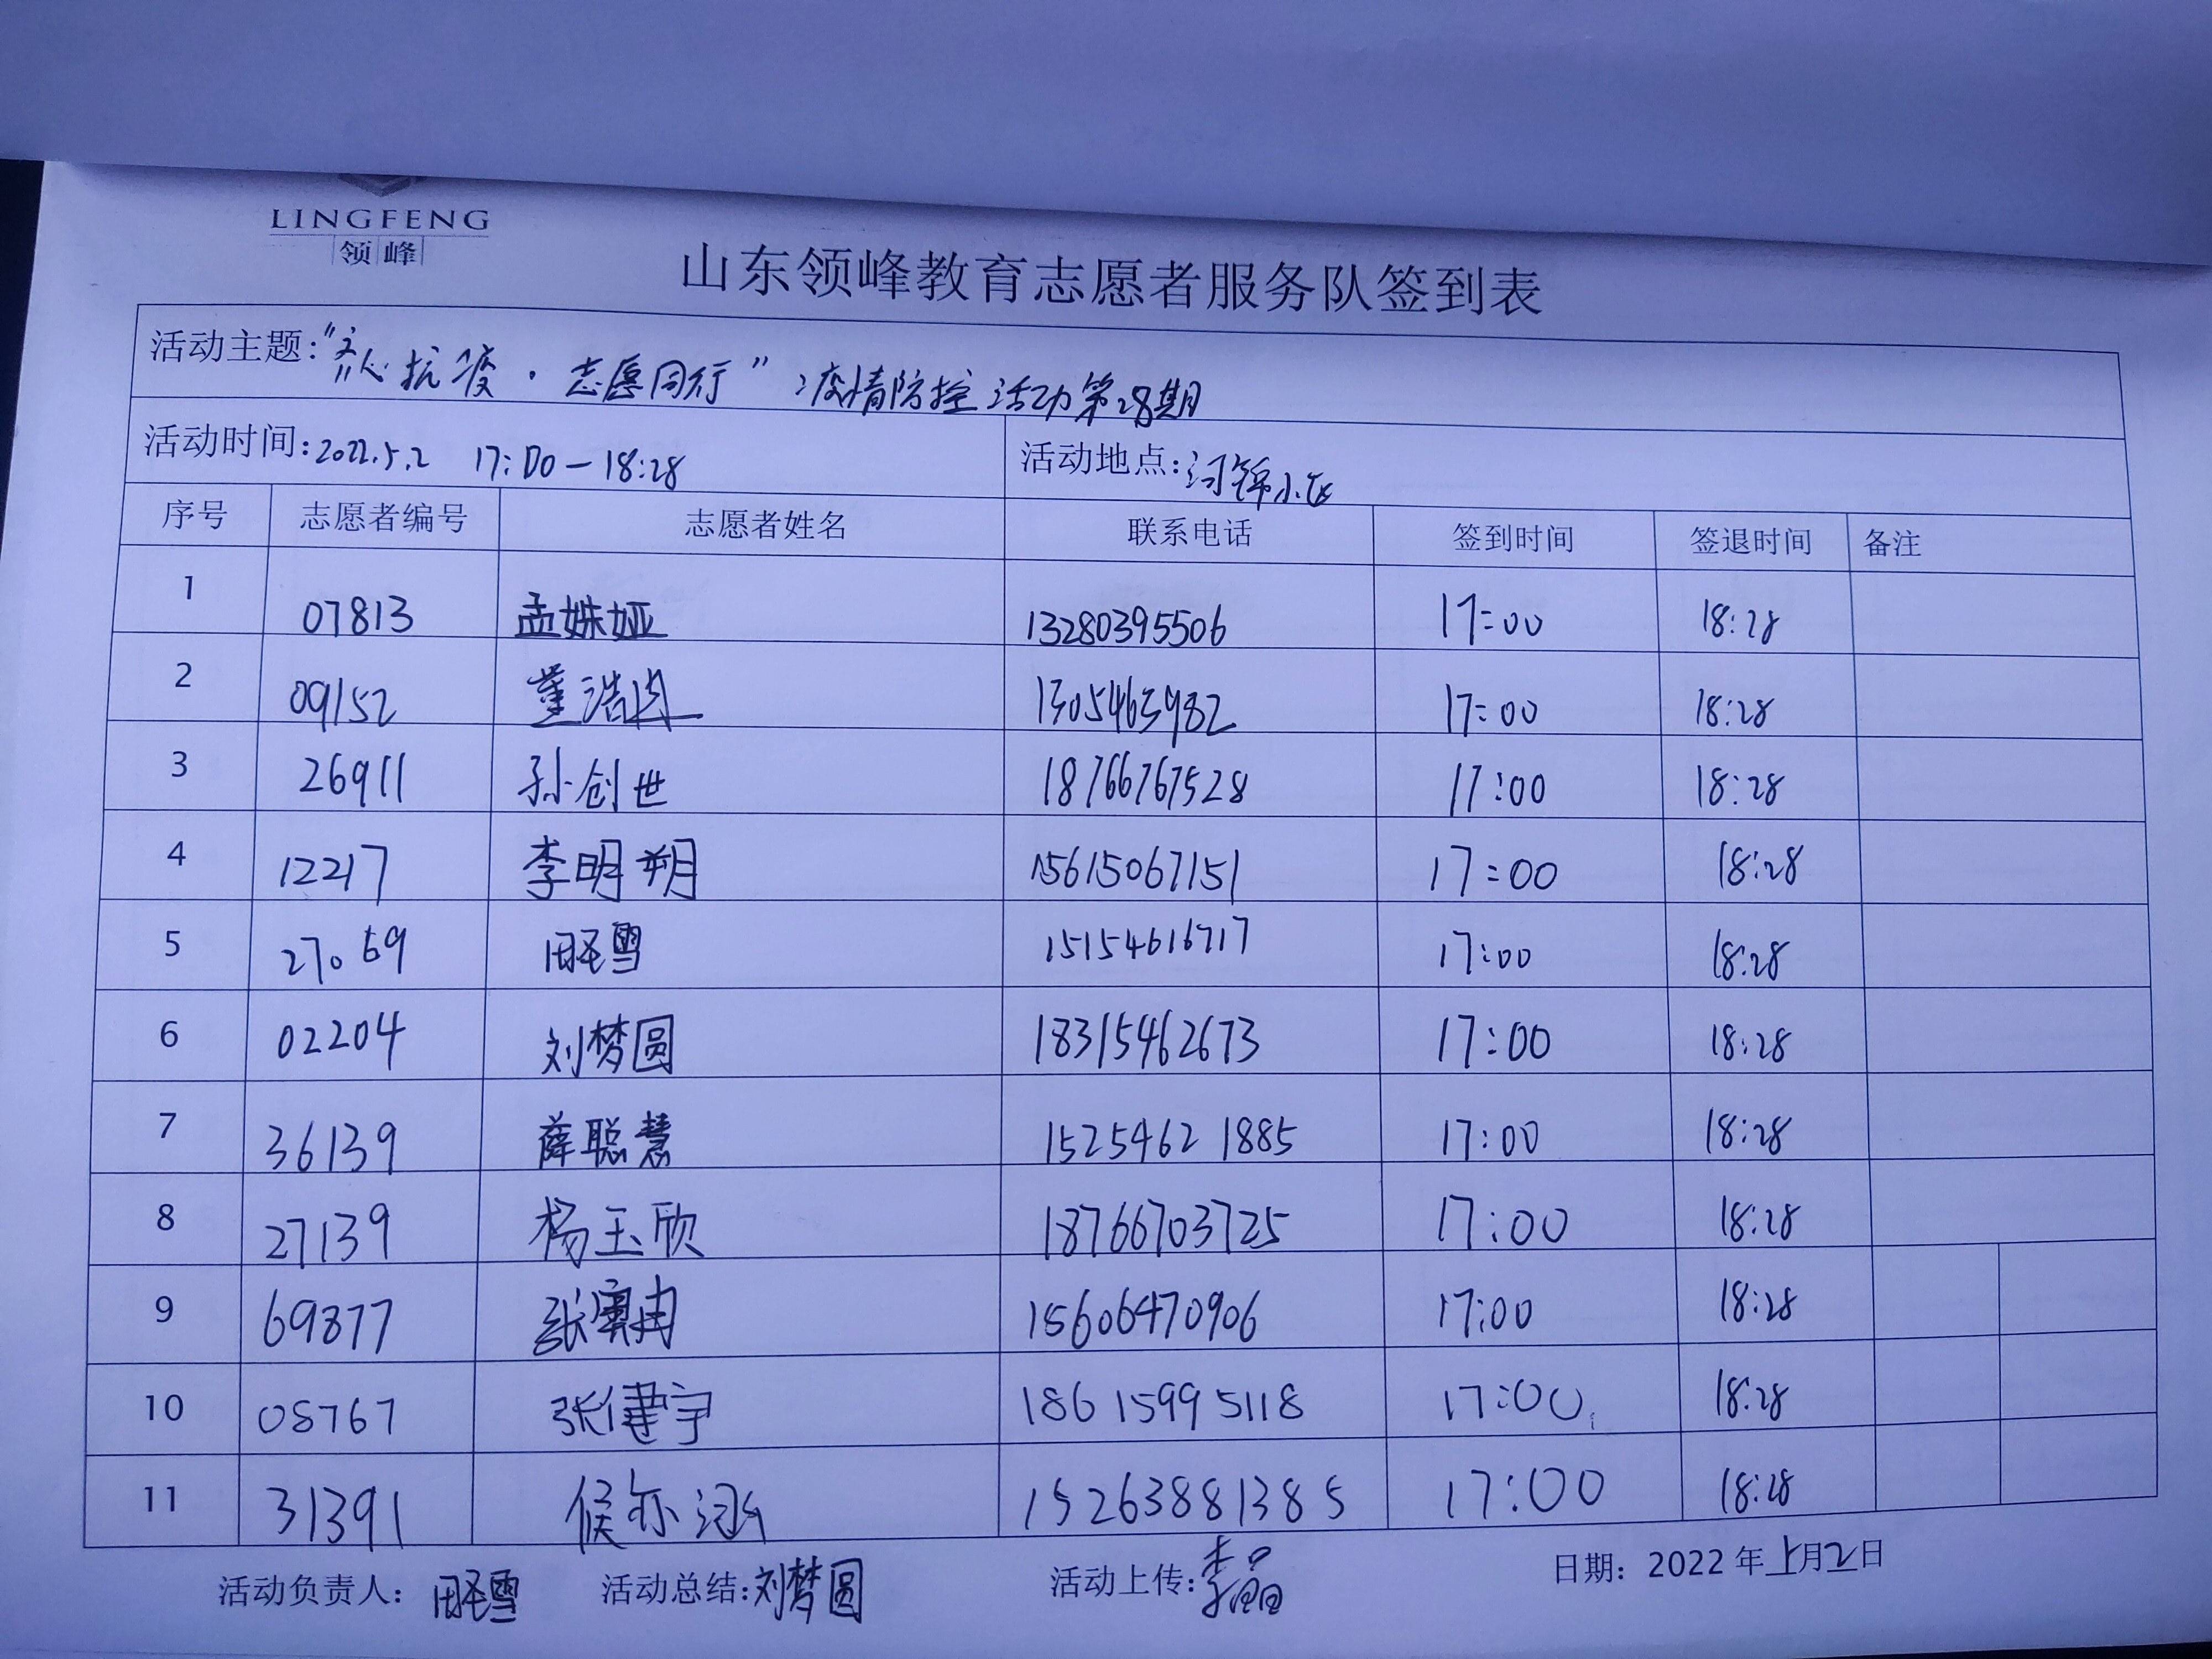 LINGFENG
领峰
山东领峰教育志愿者服务队签到表
活动主题:“齐心抗疫·志愿同行”疫情防控活动第28期
活动时间:2022.5.2 17:00—18:28 活动地点:河锦小区
序号 志愿者编号 志愿者姓名 联系电话 签到时间 签退时间 备注
1 07813 孟姝娅 13280395506 17:00 18:28
2 09152 董浩 1305463982 17:00 18:28
3 26911 孙创世 18766767528 17:00 18:28
4 12217 李明朔 15615067151 17:00 18:28
5 27069 田雪 15154616717 17:00 18:28
6 02204 刘梦圆 18315462673 17:00 18:28
7 36139 薛聪慧 15254621885 17:00 18:28
8 27139 杨玉欣 18766703725 17:00 18:28
9 69877 张冉 15606470906 17:00 18:28
10 08767 张健宇 18615995118 17:00 18:28
11 31391 侯亦涵 15263881385 17:00 18:28
活动负责人: 田雪 活动总结:刘梦圆 活动上传:李晶 日期: 2022年5月2日